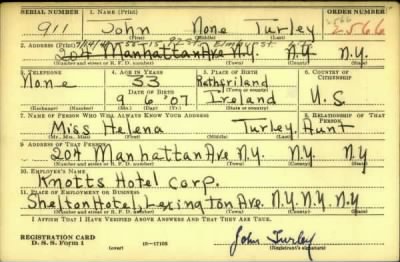 SERIAL NUMBER 1. NAME (Print) ORDER NUMBER
911 John None Turley 2566
(First) (Middle) (Last)
2. ADDRESS (Print)
204 Manhattan Ave N.Y. N.Y. N.Y.
(Number and street or R. F. D. number) (Town) (County) (State)
3. TELEPHONE 4. AGE IN YEARS 5. PLACE OF BIRTH 6. COUNTRY OF CITIZENSHIP
None 33 Rathsriland
DATE OF BIRTH (Town or county)
9 6 '07 Ireland U.S.
(Exchange) (Number) (Mo.) (Day) (Yr.) (State or country)
7. NAME OF PERSON WHO WILL ALWAYS KNOW YOUR ADDRESS 8. RELATIONSHIP OF THAT PERSON
Miss Helena Turley. Aunt
(Mr., Mrs., Miss) (First) (Middle) (Last)
9. ADDRESS OF THAT PERSON
204 Manhattan Ave N.Y. N.Y. NY
(Number and street or R. F. D. number) (Town) (County) (State)
10. EMPLOYER'S NAME
Knotts Hotel Corp.
11. PLACE OF EMPLOYMENT OR BUSINESS
Shelton Hotel, Lexington Ave. N.Y. N.Y. N.Y
(Number and street or R. F. D. number) (Town) (County) (State)
I AFFIRM THAT I HAVE VERIFIED ABOVE ANSWERS AND THAT THEY ARE TRUE.
REGISTRATION CARD
D. S. S. Form 1 (over) 16—17105
John Turley
(Registrant's signature)